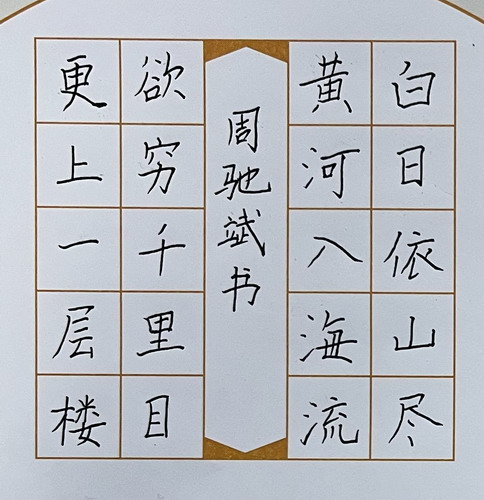 白日依山尽
黄河入海流
周驰斌书
欲穷千里目
更上一层楼